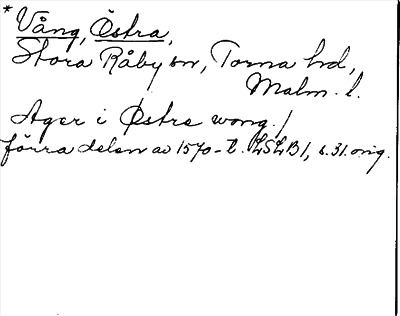 * Vång, Östra,
Stora Råby sn, Torna hd,
Malm. l.
Ager i Østre wong. /
förra delen av 1570-t. LSLB1, s. 31. orig.